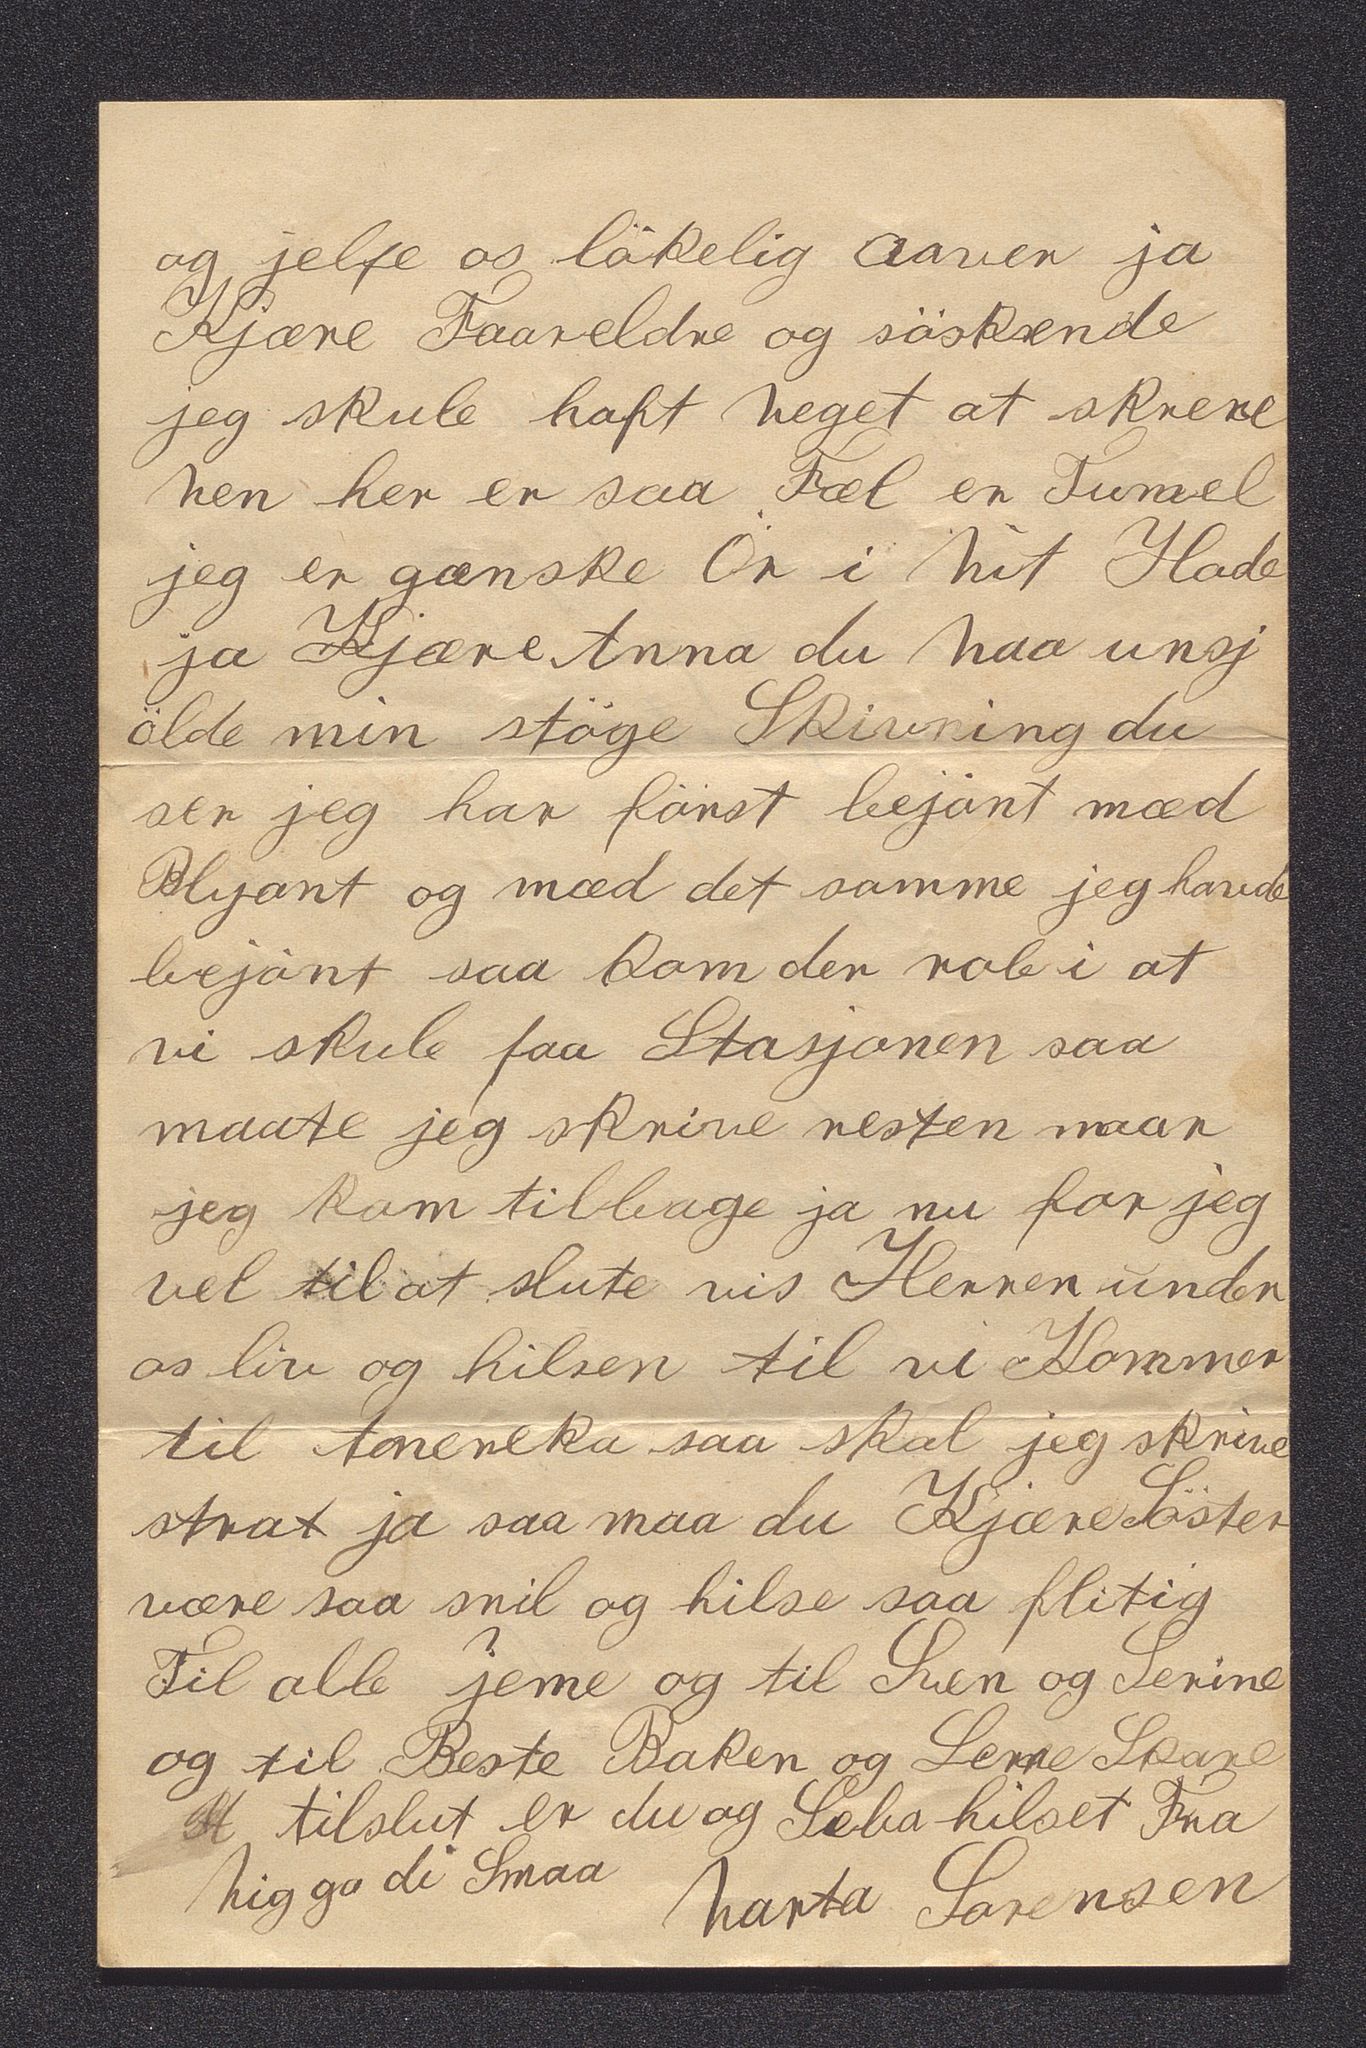 og jelpe os lökelig aaver ja
Kjære Faareldre og söskende
jeg skule haft Meget at skreve
Men her er saa Fæl en Tumel
jeg er gænske Ör i Mit Hode
ja Kjære Anna du Maa unsj
ölde min stöge Skivning du
ser jeg har först bejönt mæd
Blyant og mæd det samme jeg havde
bejönt saa kom der rob i at
vi skule faa Stasjonen saa
maate jeg skrive resten naar
jeg kom tilbage ja nu for jeg
vel til at slute vis Herren under
os liv og hilsen til vi Kommer
til Amereka saa skal jeg skrive
strat ja saa maa du Kjære Söster
være saa snil og hilse saa flitig
Til alle jeme og til Sven og Serine
og til Beste Baken og Lerre Skare
tilslut er du og Seba hilset Fra
Mig go di Smaa Marta Sorensen